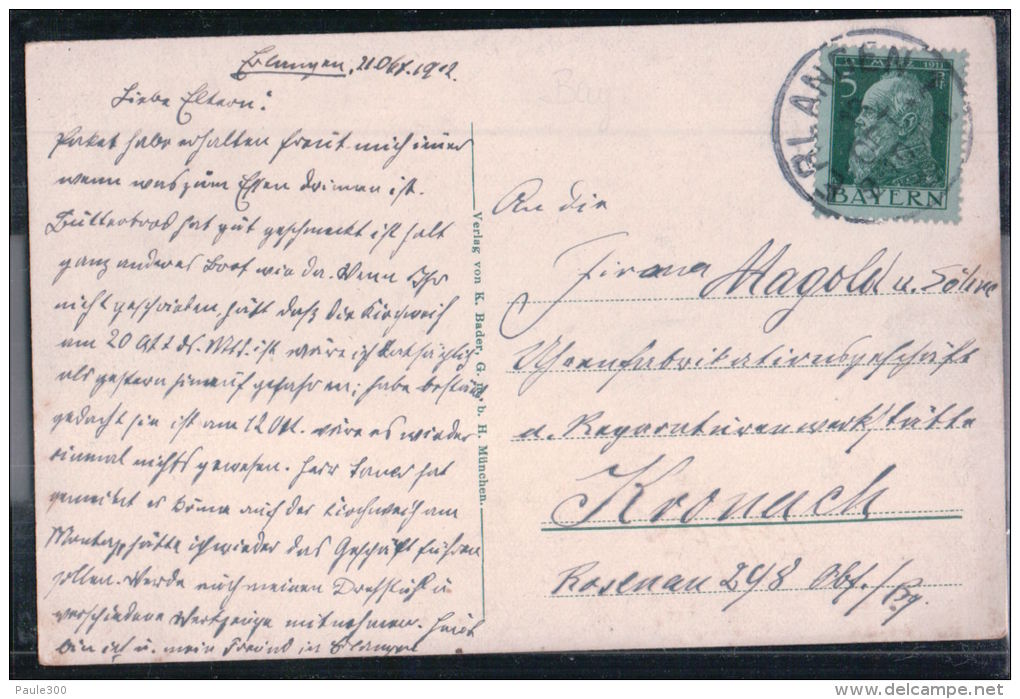 Erlangen, 2. Okt. 1912.
Liebe Eltern!
Paket habe erhalten freut mich immer
wenn was zum Essen drinnen ist.
Butterbrot hat gut geschmeckt ist halt
ganz anderes Brot wie da. Wenn Ihr
nicht geschrieben hätt daß die Kirchweih
am 20 Okt ds. Mts. ist wäre ich tatsächlich
als gestern hinauf gefahren; habe
gedacht sie ist am 12 Okt. wäre es wieder
einmal nichts gewesen. Herr hat
gemeint er käme auch der Kirchweih am
Montag hätte ich wieder das Geschäft führen
sollen. Werde auch meinen Drehstuhl u
verschiedene Werkzeuge mitnehmen. Heute
bin ich u. mein Freund in Erlangen
Verlag von K. Bader, G. m. b. H. München.
ERLANGEN
5 Pf
1911
BAYERN
An die
Firma Magold u. Söhne
Uhrenfabrikationsgeschäft
u. Reparaturenwerkstätte
Kronach
Rosenau 248 Obf./By.
Paule300
www.delcampe.net